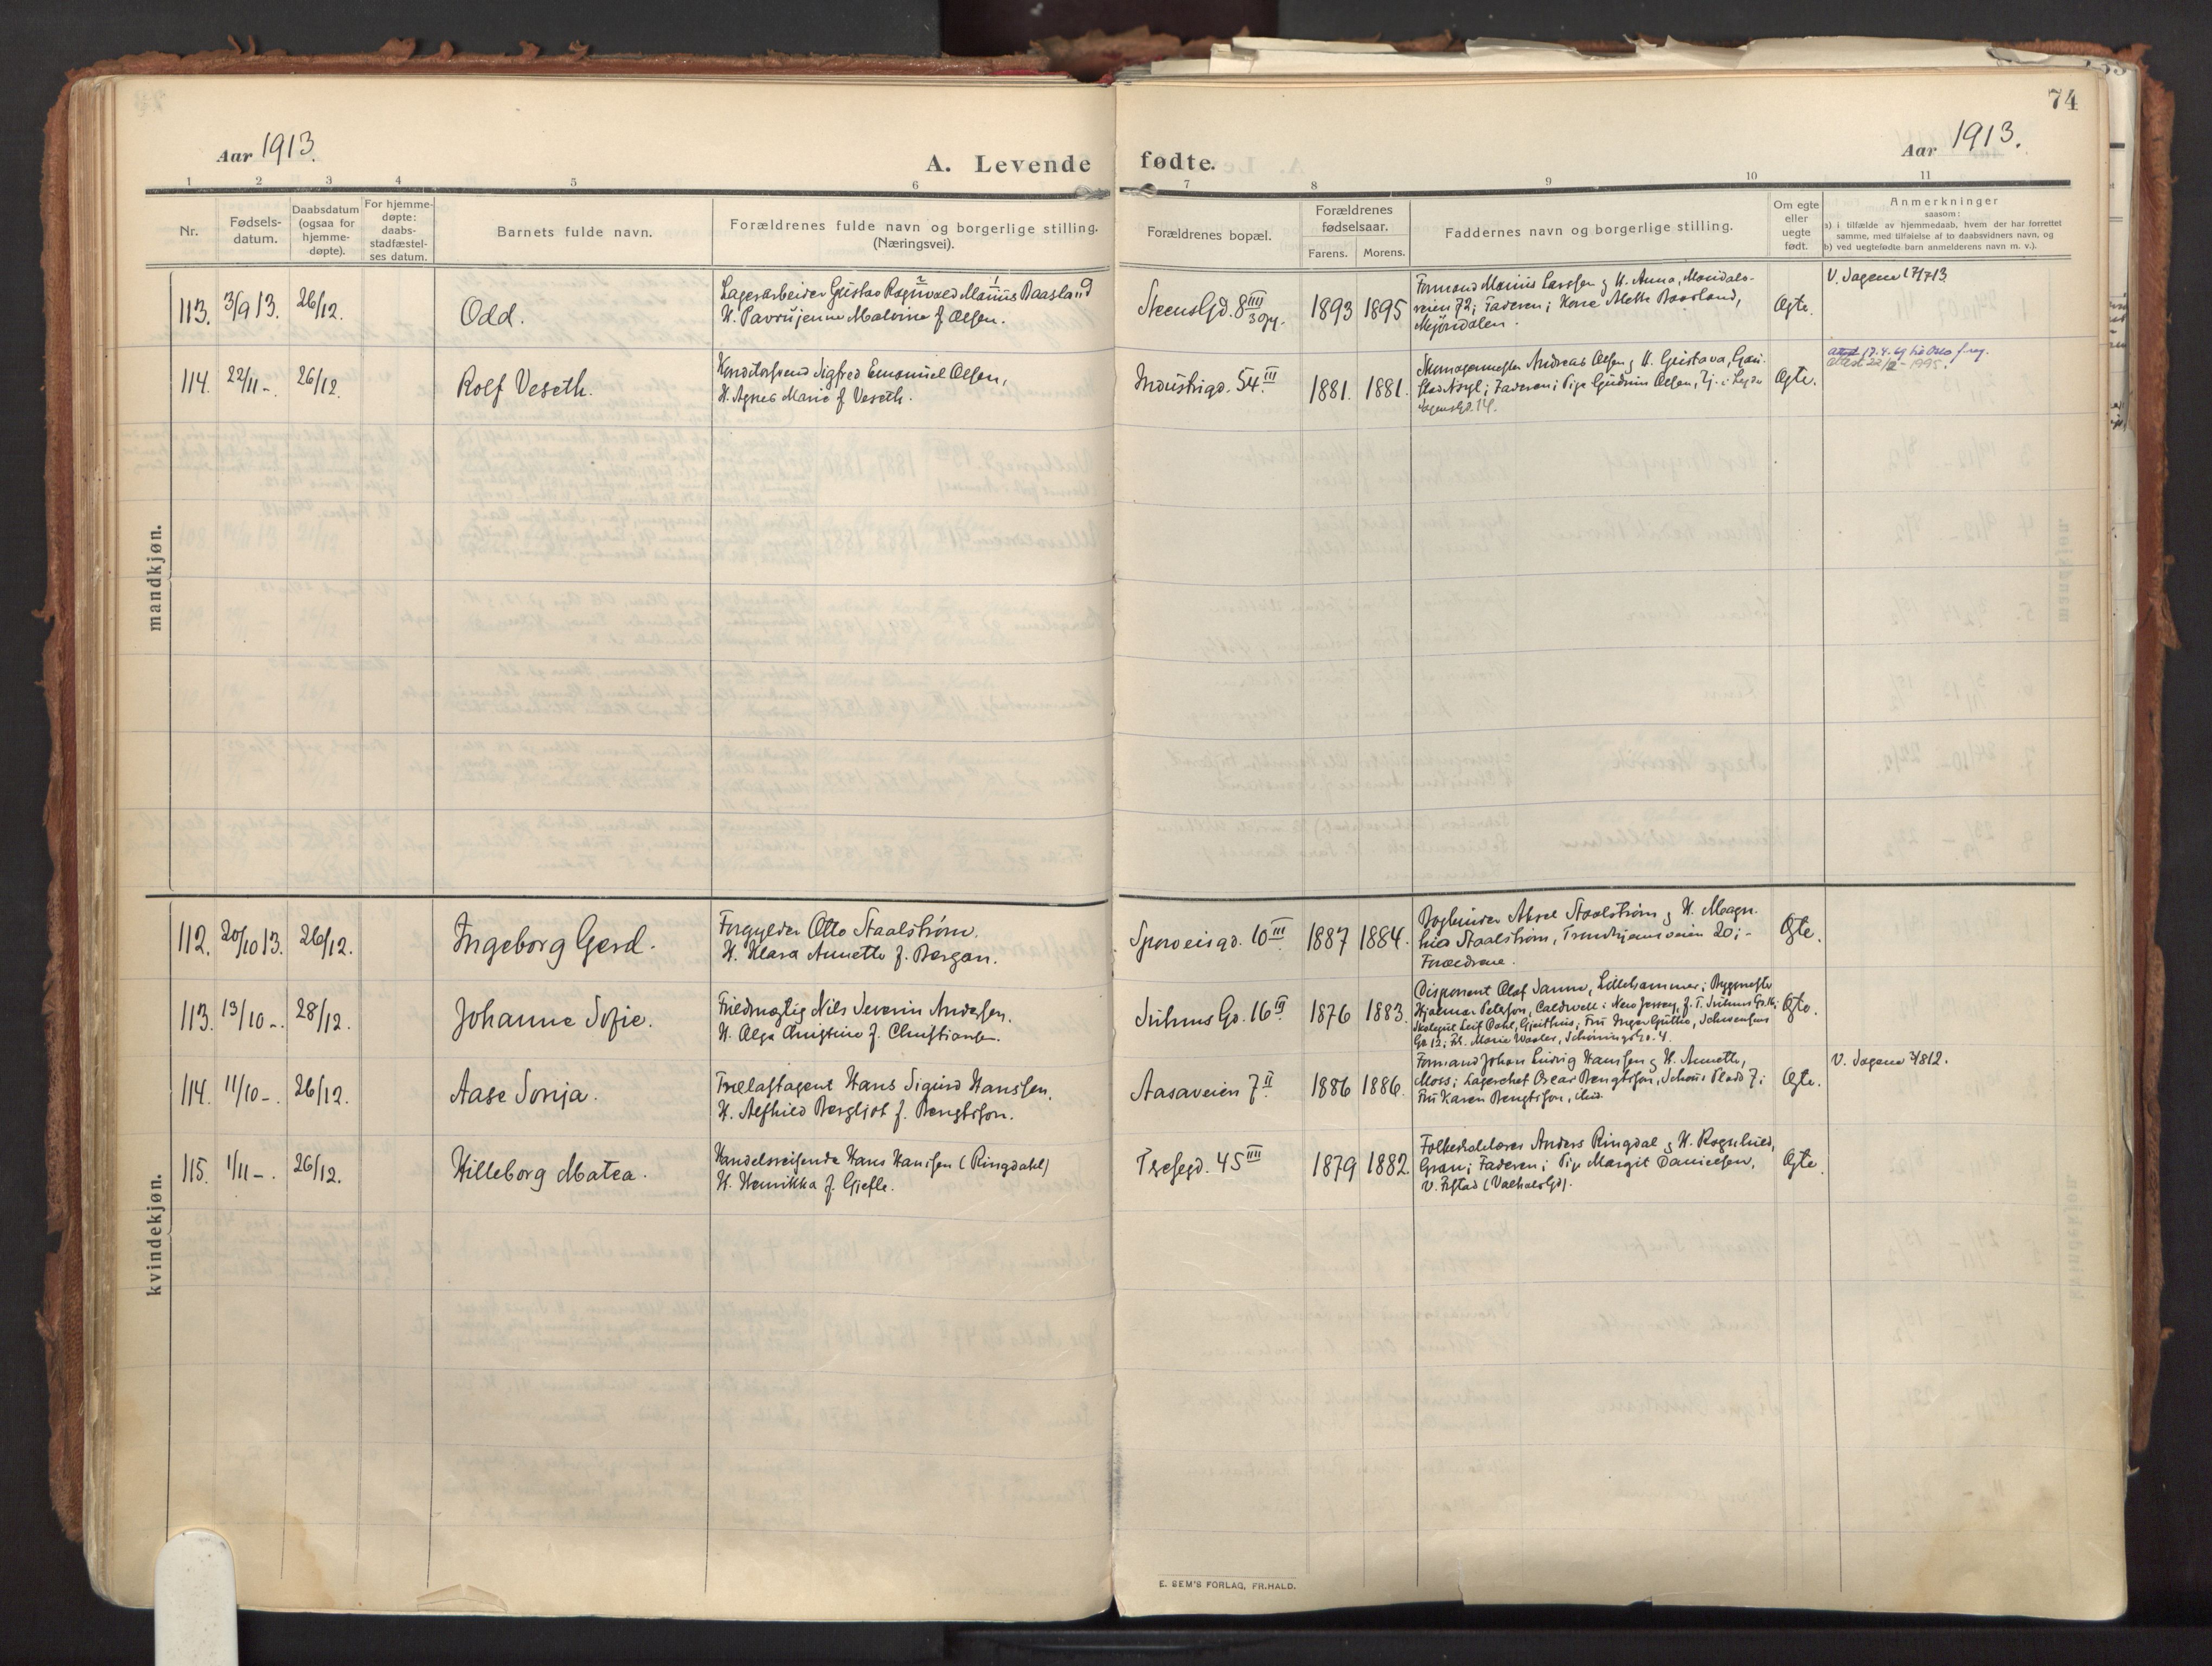 74
Aar 1913.
A. Levende fødte.
Aar 1913.
1 2 3 4 5 6 7 8 9 10 11
Nr.
Fødsels-
datum.
Daabsdatum
(ogsaa for
hjemme-
døpte).
For hjemme-
døpte:
daabs-
stadfæstel-
ses datum.
Barnets fulde navn.
Forældrenes fulde navn og borgerlige stilling.
(Næringsvei).
Forældrenes bopæl.
Forældrenes
fødselsaar.
Farens. Morens.
Faddernes navn og borgerlige stilling.
Om egte
eller
uegte
født.
Anmerkninger
saasom:
a) i tilfælde av hjemmedaab, hvem der har forrettet
samme, med tilføielse af to daabsvidners navn, og
b) ved uegtefødte barn anmelderens navn m. v.).
mandkjøn.
113. 3/9 13. 26/12.
Odd.
Lagerarbeider Gustav Ragnvald Marius Baasland
H. Malvina f. Olsen.
Steensgd. 8 IIII
1893 1895
Formand Marius Larssen og H. Anna, Maridals-
veien 72; Faderen; Mette Baasland,
Mjøndalen.
Egte.
V. Dagene 17/7 13
114. 22/11 -. 26/12.
Rolf Veseth.
Konditorsvend Sigfred Emanuel Olsen,
H. Agnes Marie f. Veseth.
Industrigd. 54 III
1881. 1881.
Andreas Olsen og H. Gustava,
Faderen; Pige Gudrun Olsen,
14.
Egte.
Attest 22/2 - 1995.
kvindekjøn.
112. 20/10 13. 26/12.
Ingeborg Gerd.
Forgylder Otto Staalstrøm.
H. Klara Annette f. Bergan.
Sporveisgd. 10 III
1887 1884.
Bogbinder Aksel Staalstrøm og H. Magn-
hild Staalstrøm, Trondhjemsveien 20; -
Forældrene.
Egte.
113. 13/10 -. 28/12.
Johanne Sofie.
Fuldmægtig Nils Severin Andersen.
H. Olga Christine f. Christiansen.
Suhms Gd. 16 III
1876 1883.
Disponent Olaf Sanne, Lillehammer; Byggmester
Hjalmar Peterson, Caldwell i New Jersey, f. T. Suhms Gd. 16;
Leif Dahl, Gjeithus; Fru Inger Guttie, Schwensens
Gd. 12; Frk. Marie Waaler, Schøningsgd. 4.
Egte.
114. 11/10 -. 26/12.
Aase Sonja.
Trælastagent Hans Sigurd Hanssen.
H. Alfhild Bergljot f. Bengtsson.
Aasaveien 7 II
1886 1886.
Formand Johan Ludvig Hanssen og H. Annette,
Moss; Lagerchef Oscar Bengtsson, Schous Plads 7;
Fru Karen Bengtsson, ibid.
Egte.
115. 1/11 -. 26/12.
Willeborg Matea.
Handelsreisende Hans Hansen (Ringdahl)
H. Henrikka f. Gjefle.
45 IIII
1879 1882.
Folkeskolelærer Anders Ringdal og H. Ragnhild,
Gran; Faderen; Pige Margit Danielsen,
Egte.
E. SEM'S FORLAG, FR.HALD.